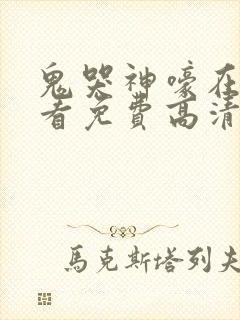 鬼哭神嚎在
看免费高清
馬克斯塔列夫